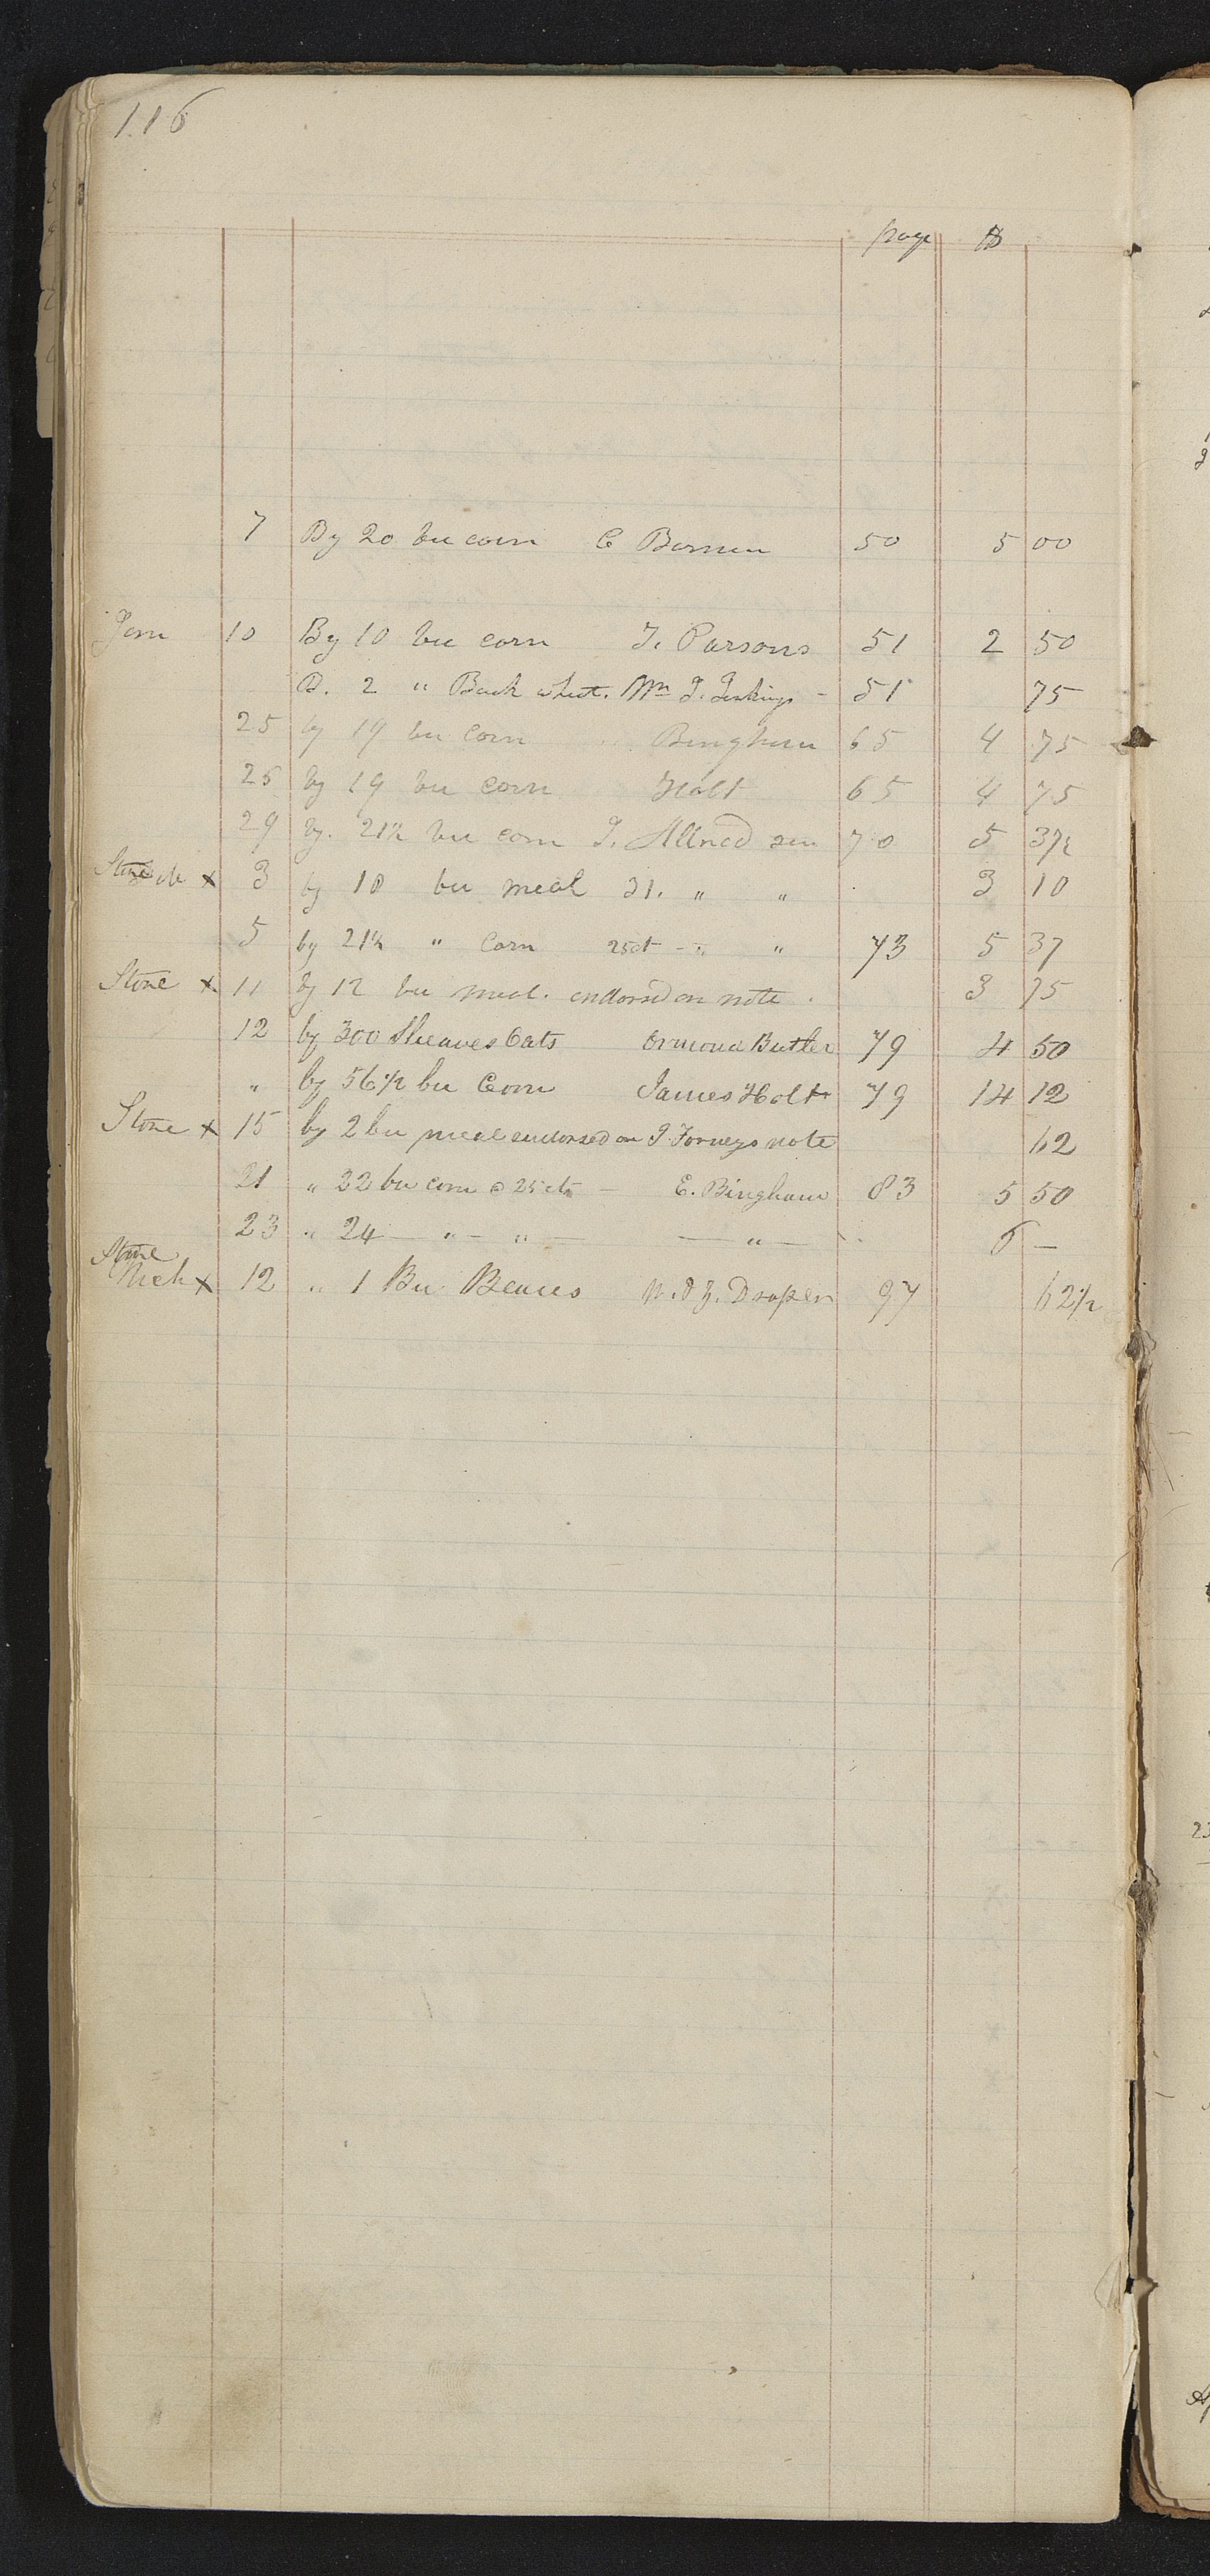 116
page $
7 By 20 bu corn C 50 5 00
Jan 10 By 10 bu corn T. Parsons 51 2 50
D. 2 " Buck wheat. Wm J. Jenkings - 51 75
25 by 19 bu corn Bingham 65 4 75
25 by 19 bu corn Holt 65 4 75
29 by. 21½ bu corn J. Allred sen 70 5 37½
Store x 3 by 10 bu meal 31. " " 3 10
5 by 21½ " Corn 25ct - " " 73 5 37
Store x 11 by 12 bu meal. endorsed on note. 3 75
12 by 300 Sheaves Oats Ormond Butler 79 4 50
" by 56½ bu Corn James Holt 79 14 12
Store x 15 by 2 bu meal endorsed on J. Forneys note 62
21 " 22 bu corn @ 25 cts - E. Bingham 83 5 50
23 " 24 — " — " — — " — " 6 —
Store
Mch x 12 " 1 Bu Beans W. & Z. Draper 97 62½